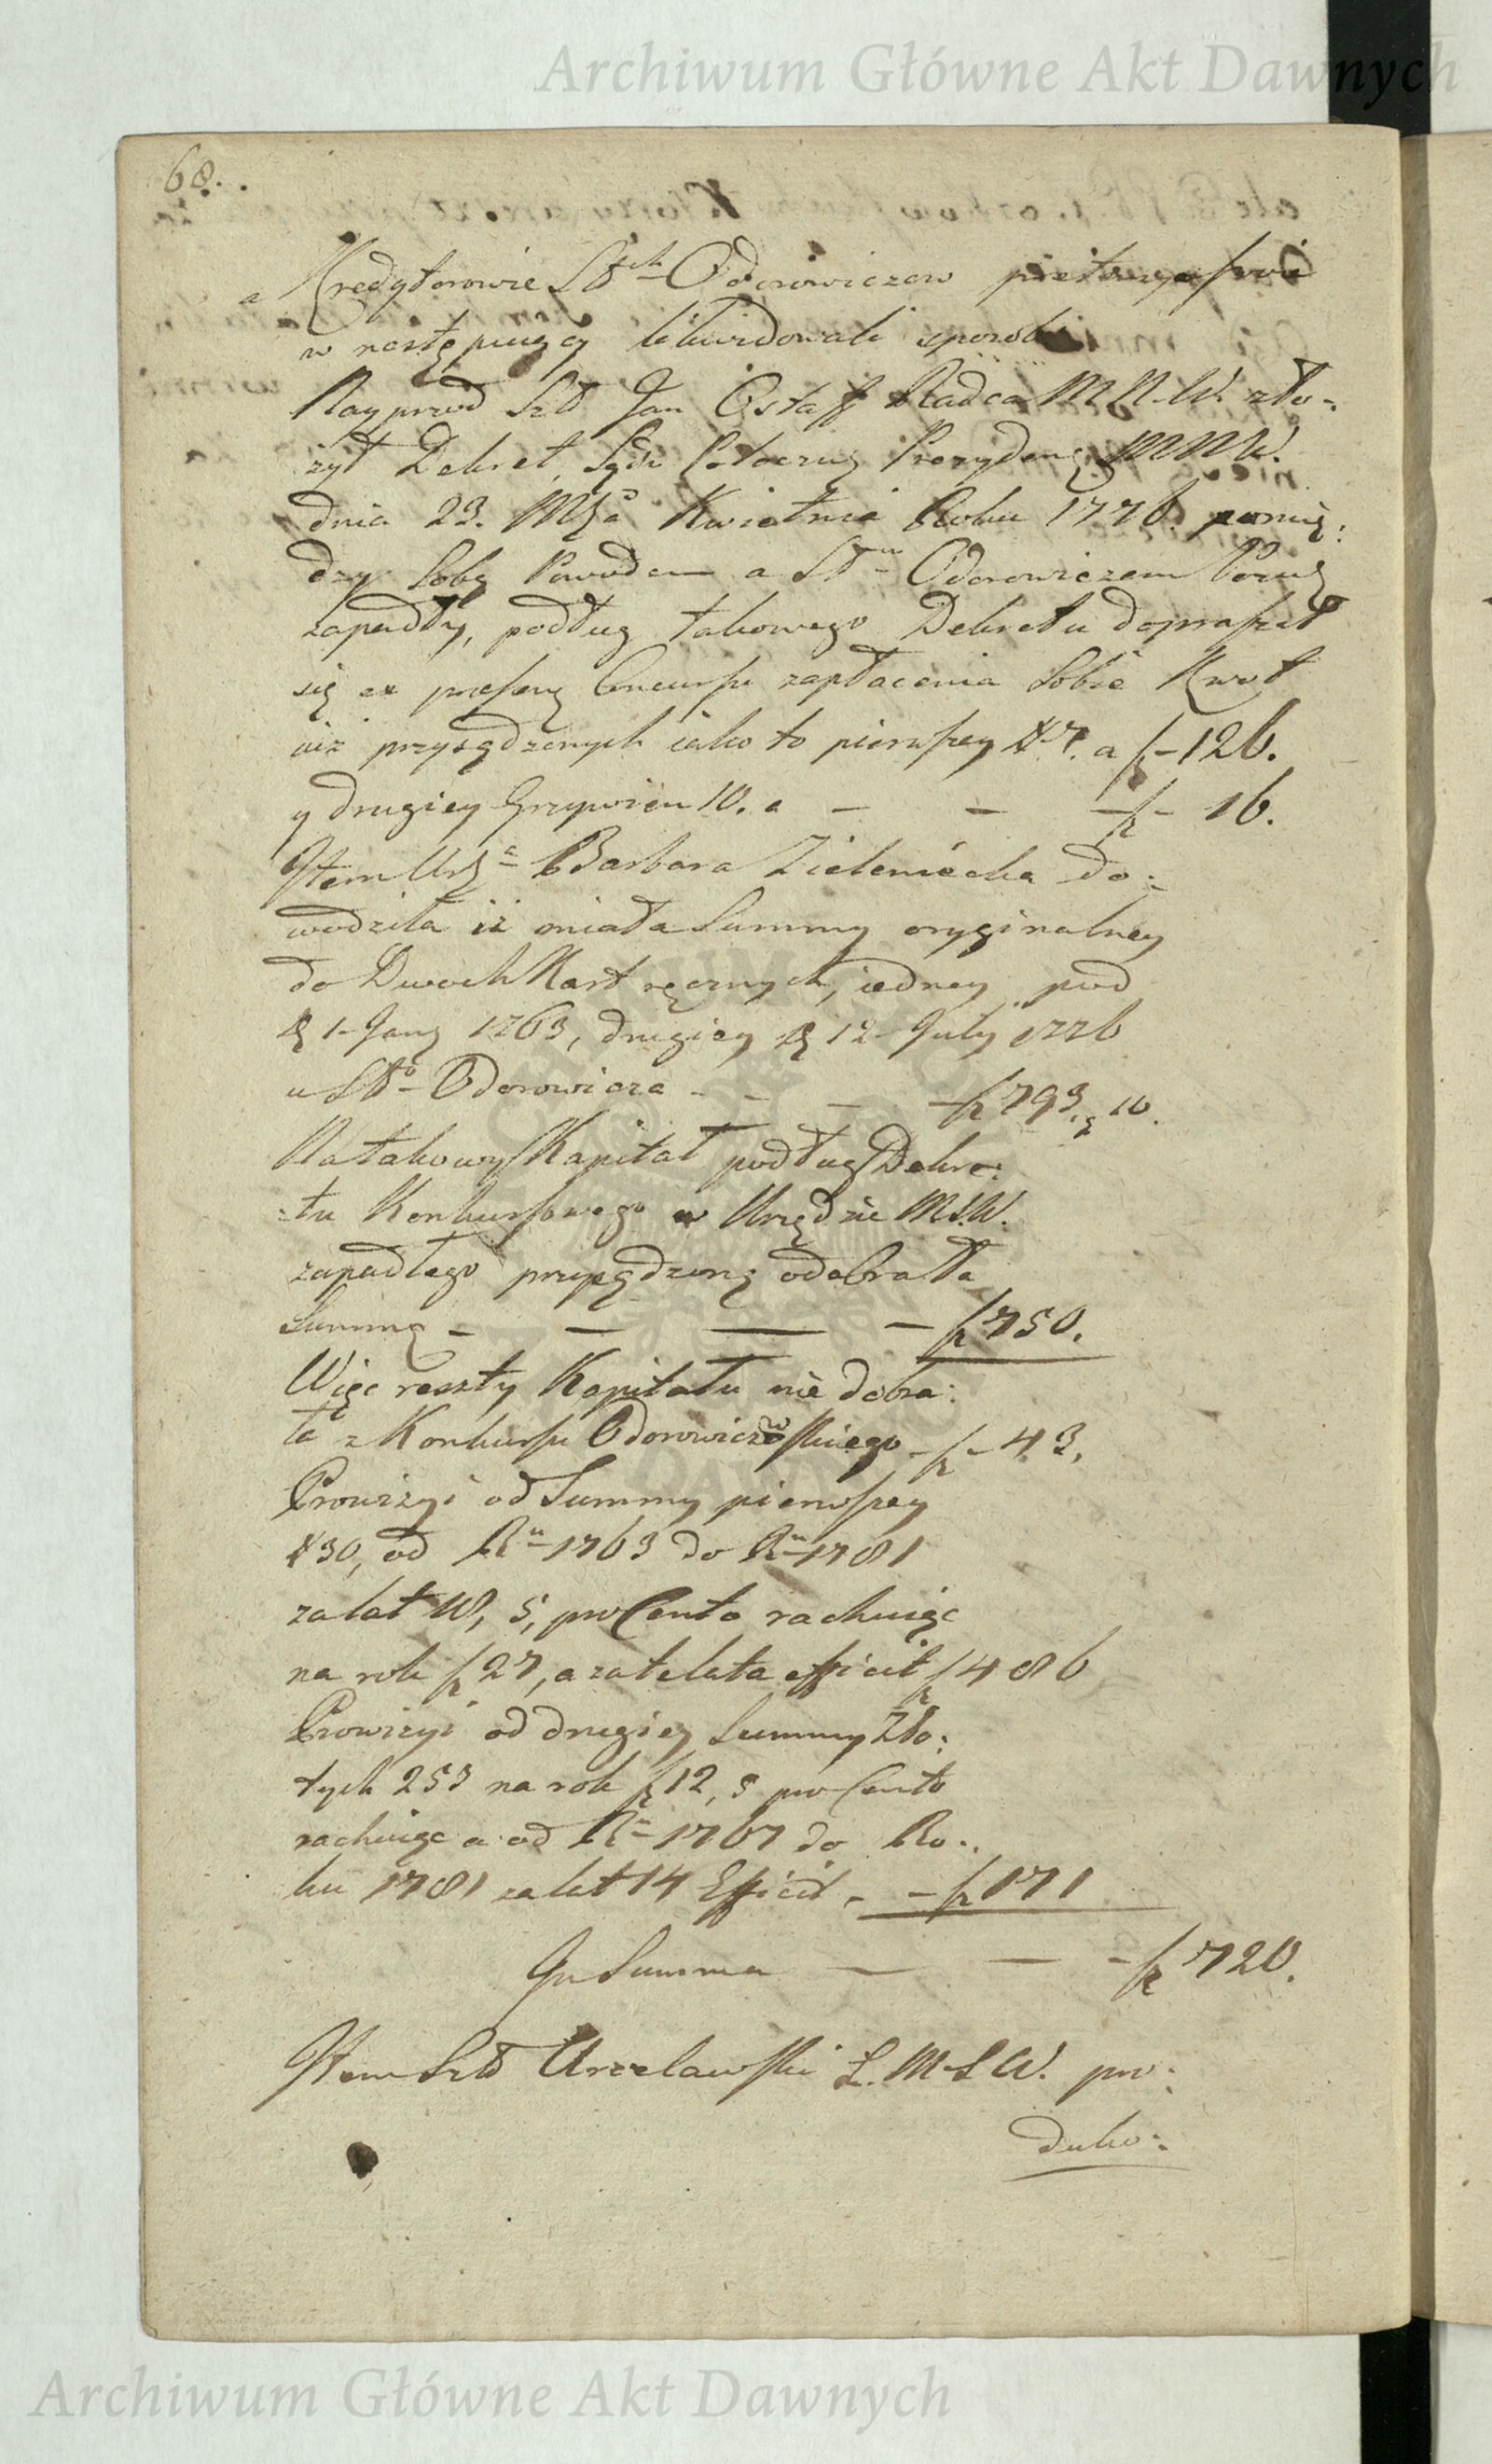 Archiwum Główne Akt Dawnych
68.
a Kredytorowie Sttch Odorowiczow pretensye swoie
w następuiący likwidowali sposob
Nayprzod Szl Jan Ostaff Radca M N W. zło:
żył Dekret Sądu Potoczneg Prezydenc MNW.
dnia 23. Msca Kwietnia Roku 1776. pomię:
dzy Sobą Powodem a Sttm Odorowiczem
zapadły, podług takowego Dekretu dopraszał
się ex Concursu zapłacenia Sobie Kwot
iuż przysądzonych iako to pierwszey # 7. a f 126.
y drugiey Grzywien 10. a — — f 16.
Item Urz Barbara Zieleniecka do:
wodziła iż miała Summy oryginalney
do Dwoch Kart ręcznych, iedney pod
1 Jany 1763, drugiey 12 July 1776
u Stto Odorowicza - - — f 793. g 10.
Na takowy Kapitał podług Dekre:
tu Konkursowego w Urzędzie M.S.W.
zapadłego przysądzoną odebrała
Summę - — — f 750.
Więc reszty Kapitału nie dobra:
ła z Konkursu Odorowiczowskiego - f 43.
Prowizyi od Summy pierwszey
# 30, od Ru 1763 do Ru 1781
za lat 18, 5, pro Cento rachuiąc
na rok f 27, a za te lata efficit f 486
Prowizyi od drugiey Summy Zło:
tych 253 na rok f 12, 5 pro Cento
rachuiąc a od Ru 1767 do Ro:
ku 1781 za lat 14 Efficit - f 171
In Summa — — f 720.
Item Szl Urzelawski Ł. M S W. pro:
duko:
Archiwum Główne Akt Dawnych